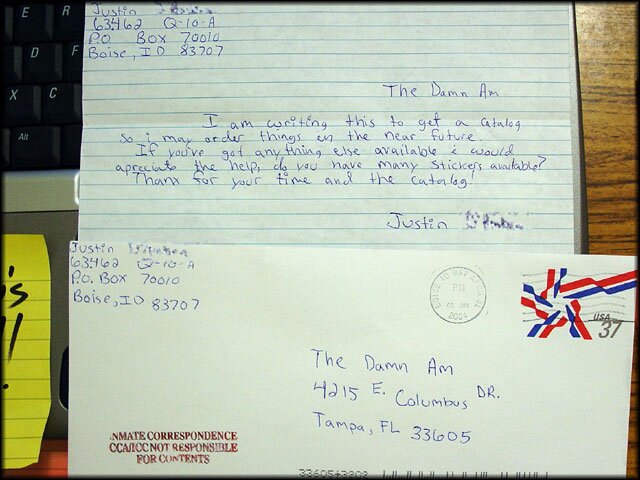 E R
D F
X C
Alt
Justin
63462 Q-10-A
P.O. Box 70010
Boise, ID 83707
The Damn Am
I am writing this to get a catalog
So i may order things in the near future.
If you've got anything else available i would
apreciate the help, do you have many stickers available?
Thank for your time and the catalog!
Justin
's
Justin
63462 Q-10-A
P.O. Box 70010
Boise, ID 83707
PM
2004
USA
37
The Damn Am
4215 E. Columbus DR.
Tampa, FL 33605
NMATE CORRESPONDENCE
CCA/ICC NOT RESPONSIBLE
FOR CONTENTS
33605+3202